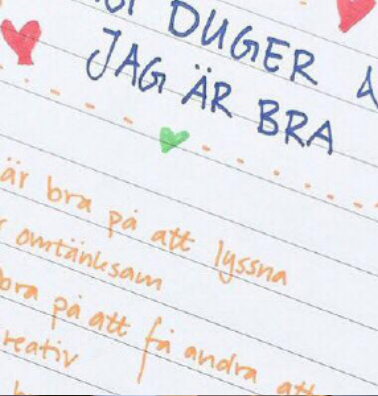 DUGER
JAG ÄR BRA
är bra på att lyssna
omtänksam
bra på att få andra att